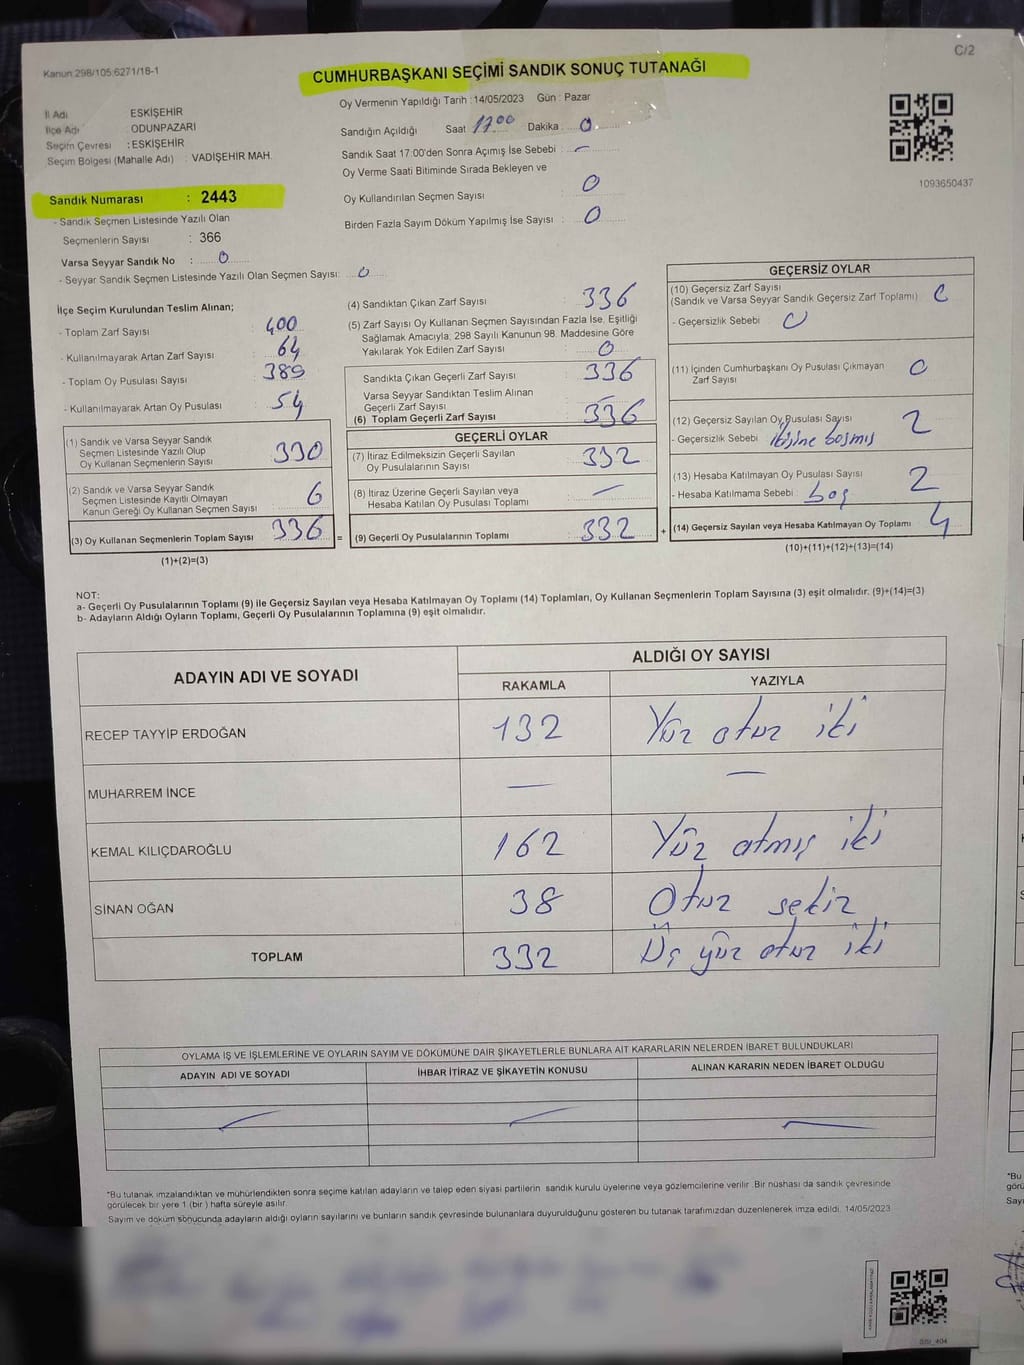 C/2
Kanun:298/105:6271/18-1
CUMHURBAŞKANI SEÇİMİ SANDIK SONUÇ TUTANAĞI
İl Adı ESKİŞEHİR
İlçe Adı : ODUNPAZARI
Seçim Çevresi : ESKİŞEHİR
Seçim Bölgesi (Mahalle Adı) : VADİŞEHİR MAH.
Sandık Numarası : 2443
- Sandık Seçmen Listesinde Yazılı Olan
Seçmenlerin Sayısı : 366
Varsa Seyyar Sandık No : 0
- Seyyar Sandık Seçmen Listesinde Yazılı Olan Seçmen Sayısı: 0
Oy Vermenin Yapıldığı Tarih : 14/05/2023 Gün : Pazar
Sandığın Açıldığı Saat 17:00 Dakika 0
Sandık Saat 17:00'den Sonra Açımış İse Sebebi : –
Oy Verme Saati Bitiminde Sırada Bekleyen ve
Oy Kullandırılan Seçmen Sayısı : 0
Birden Fazla Sayım Döküm Yapılmış İse Sayısı : 0
1093650437
İlçe Seçim Kurulundan Teslim Alınan;
- Toplam Zarf Sayısı : 400
- Kullanılmayarak Artan Zarf Sayısı : 64
- Toplam Oy Pusulası Sayısı : 389
- Kullanılmayarak Artan Oy Pusulası : 54
(1) Sandık ve Varsa Seyyar Sandık
Seçmen Listesinde Yazılı Olup
Oy Kullanan Seçmenlerin Sayısı 330
(2) Sandık ve Varsa Seyyar Sandık
Seçmen Listesinde Kayıtlı Olmayan
Kanun Gereği Oy Kullanan Seçmen Sayısı 6
(3) Oy Kullanan Seçmenlerin Toplam Sayısı 336 =
(1)+(2)=(3)
(4) Sandıktan Çıkan Zarf Sayısı 336
(5) Zarf Sayısı Oy Kullanan Seçmen Sayısından Fazla İse, Eşitliği
Sağlamak Amacıyla, 298 Sayılı Kanunun 98. Maddesine Göre
Yakılarak Yok Edilen Zarf Sayısı : 0
Sandıkta Çıkan Geçerli Zarf Sayısı 336
Varsa Seyyar Sandıktan Teslim Alınan
Geçerli Zarf Sayısı –
(6) Toplam Geçerli Zarf Sayısı 336
GEÇERLİ OYLAR
(7) İtiraz Edilmeksizin Geçerli Sayılan
Oy Pusulalarının Sayısı 332
(8) İtiraz Üzerine Geçerli Sayılan veya
Hesaba Katılan Oy Pusulası Toplamı –
(9) Geçerli Oy Pusulalarının Toplamı 332 +
GEÇERSİZ OYLAR
(10) Geçersiz Zarf Sayısı
(Sandık ve Varsa Seyyar Sandık Geçersiz Zarf Toplamı) 0
- Geçersizlik Sebebi : 0
(11) İçinden Cumhurbaşkanı Oy Pusulası Çıkmayan
Zarf Sayısı 0
(12) Geçersiz Sayılan Oy Pusulası Sayısı 2
- Geçersizlik Sebebi : ikisine basmış
(13) Hesaba Katılmayan Oy Pusulası Sayısı 2
- Hesaba Katılmama Sebebi : boş
(14) Geçersiz Sayılan veya Hesaba Katılmayan Oy Toplamı 4
(10)+(11)+(12)+(13)=(14)
NOT:
a- Geçerli Oy Pusulalarının Toplamı (9) ile Geçersiz Sayılan veya Hesaba Katılmayan Oy Toplamı (14) Toplamları, Oy Kullanan Seçmenlerin Toplam Sayısına (3) eşit olmalıdır. (9)+(14)=(3)
b- Adayların Aldığı Oyların Toplamı, Geçerli Oy Pusulalarının Toplamına (9) eşit olmalıdır.
ADAYIN ADI VE SOYADI ALDIĞI OY SAYISI
RAKAMLA YAZIYLA
RECEP TAYYİP ERDOĞAN 132 Yüz otuz iki
MUHARREM İNCE – –
KEMAL KILIÇDAROĞLU 162 Yüz atmış iki
SİNAN OĞAN 38 Otuz sekiz
TOPLAM 332 Üç yüz otuz iki
OYLAMA İŞ VE İŞLEMLERİNE VE OYLARIN SAYIM VE DÖKÜMÜNE DAİR ŞİKAYETLERLE BUNLARA AİT KARARLARIN NELERDEN İBARET BULUNDUKLARI
ADAYIN ADI VE SOYADI İHBAR İTİRAZ VE ŞİKAYETİN KONUSU ALINAN KARARIN NEDEN İBARET OLDUĞU
*Bu tutanak imzalandıktan ve mühürlendikten sonra seçime katılan adayların ve talep eden siyasi partilerin sandık kurulu üyelerine veya gözlemcilerine verilir. Bir nüshası da sandık çevresinde
görülecek bir yere 1 (bir) hafta süreyle asılır.
Sayım ve döküm sonucunda adayların aldığı oyların sayılarını ve bunların sandık çevresinde bulunanlara duyurulduğunu gösteren bu tutanak tarafımızdan düzenlenerek imza edildi. 14/05/2023